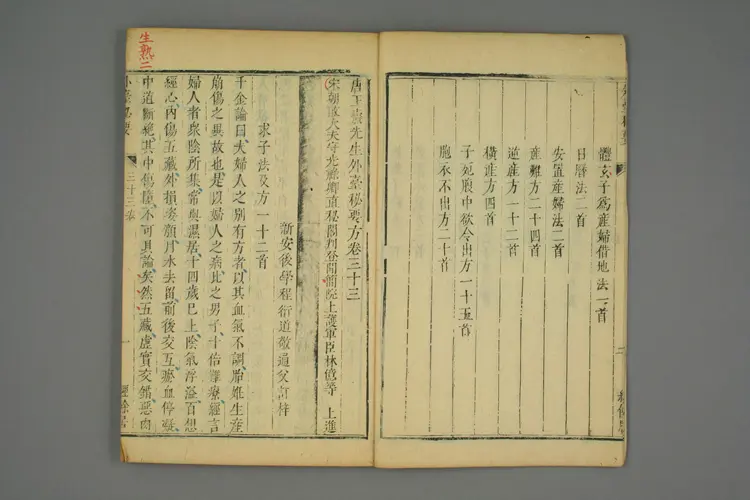 體玄子爲產婦借地法一首
日曆法二首
安置產婦法二首
產難方二十四首
逆產方一十二首
橫產方四首
子死腹中欲令出方一十五首
胞衣不出方二十首
二
唐王燾先生外臺秘要方卷三十三
宋朝散大夫守光祿卿直秘閣判登聞簡院上護軍臣林億等 上進
新安後學程衍道敬通父訂梓
求子法及方一十二首
千金論曰夫婦人之別有方者以其血氣不調胎姙生產
崩傷之異故也是以婦人之病比之男子十倍難療經言
婦人者衆陰所集常與濕居十四歲已上陰氣浮溢百想
經心內傷五藏外損姿顏月水去留前後交互瘀血停凝
中道斷絕其中傷墮不可具論矣然五藏虛實交錯惡肉
三十三卷
一
經餘居
生熟二